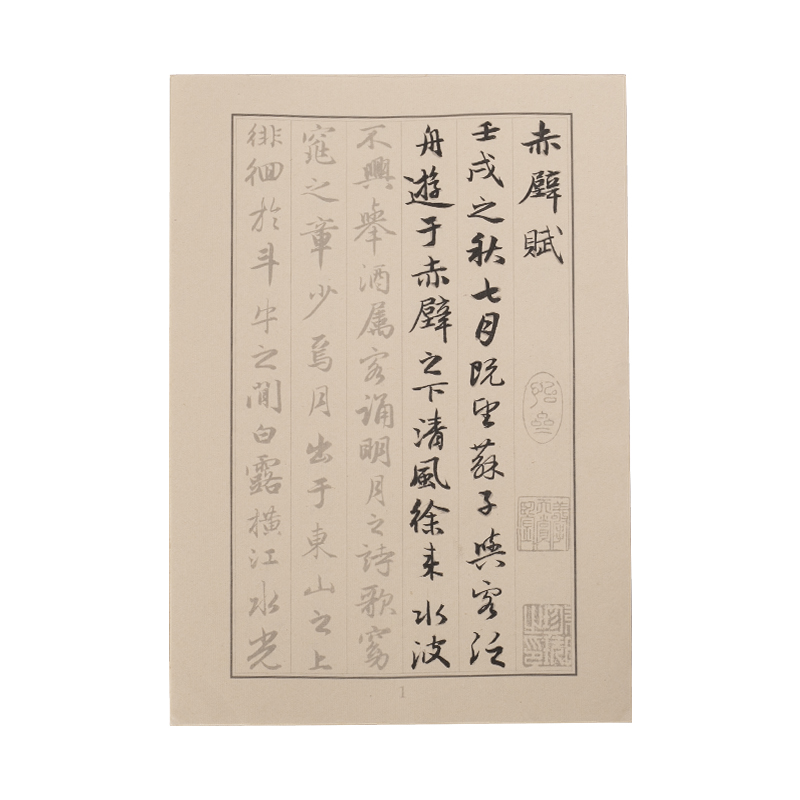 赤壁賦
壬戌之秋七月既望蘇子與客泛
舟遊于赤壁之下清風徐來水波
不興舉酒属客誦明月之詩歌窈
窕之章少焉月出于東山之上
徘徊於斗牛之間白露橫江水光
1